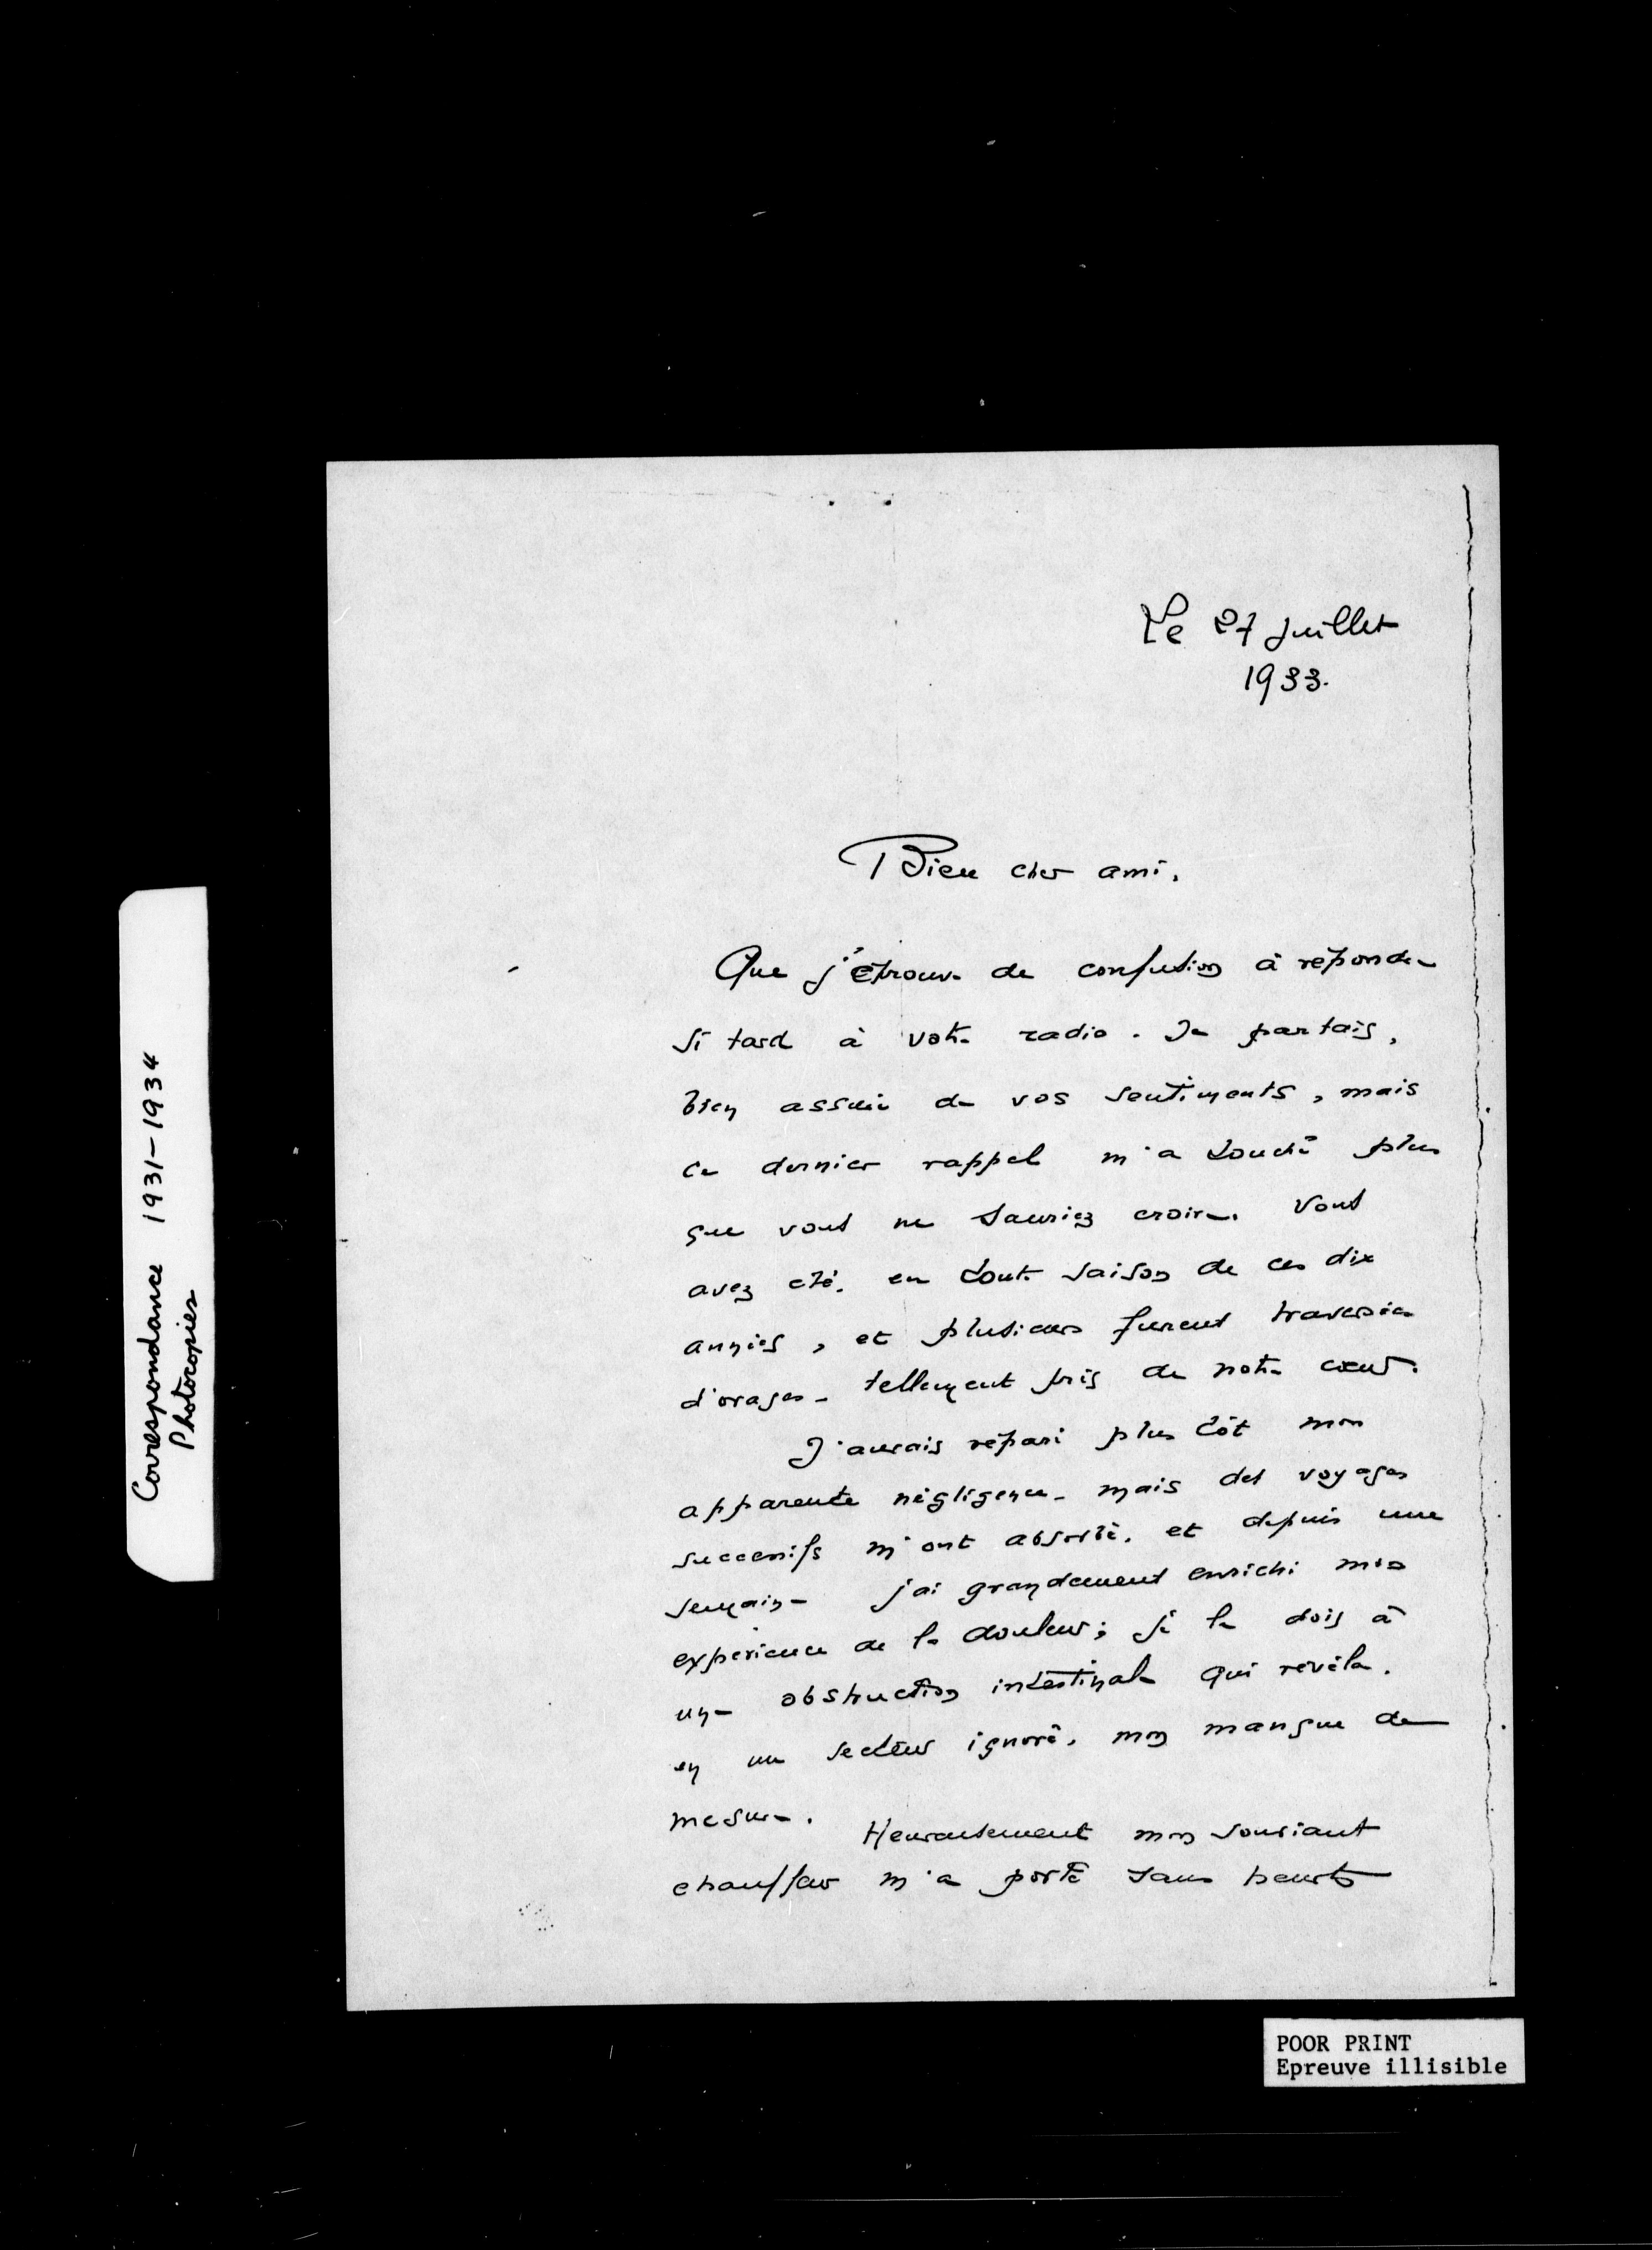 Correspondance 1931-1934
Photocopies
Le 27 Juillet
1933.
Bien cher ami.
Que j'éprouve de confusion à répondre
si tard à votre radio. Je partais,
bien assuré de vos sentiments, mais
ce dernier rappel m'a touché plus
que vous ne sauriez croire. Vous
avez été, en toute saison de ces dix
années, et plusieurs furent traversées
d'orages - tellement près de notre cœur.
J'aurais réparé plus tôt mon
apparente négligence - mais des voyages
successifs m'ont absorbé, et depuis une
semaine j'ai grandement enrichi mon
expérience de la douleur; je le dois à
une obstruction intestinale qui révéla,
en un secteur ignoré, mon manque de
mesure. Heureusement mon souriant
chauffeur m'a porté sans heurts
POOR PRINT
Epreuve illisible